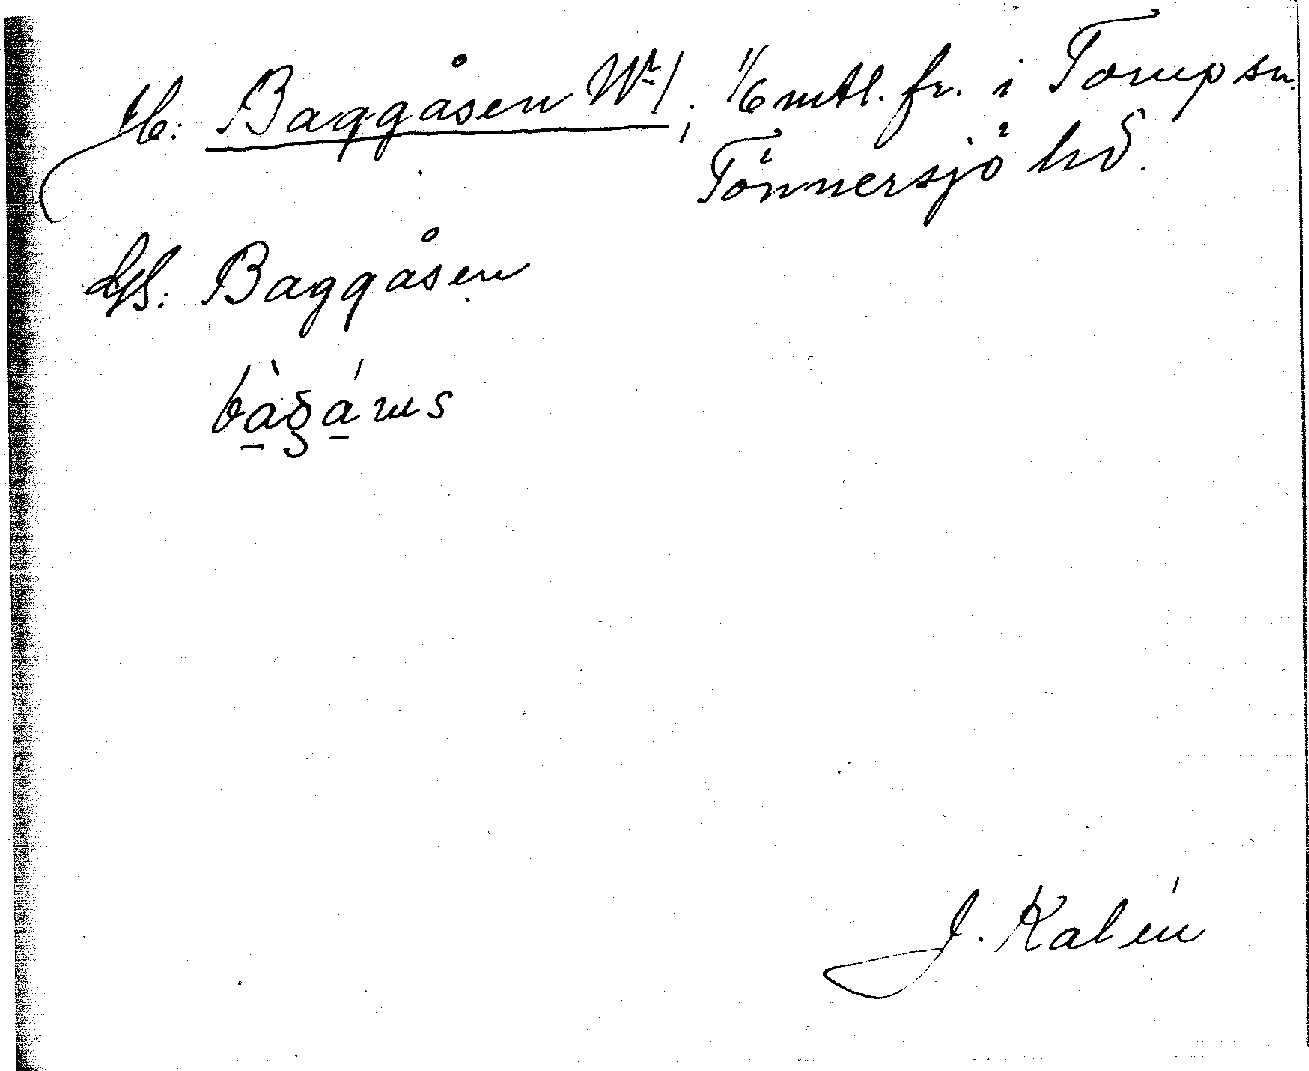 Jb: Baggåsen Nr 1, 1/6 mtl. fr. i Torup sn.
Tönnersjö hd.
Gs: Baggåsen
J. Kalén